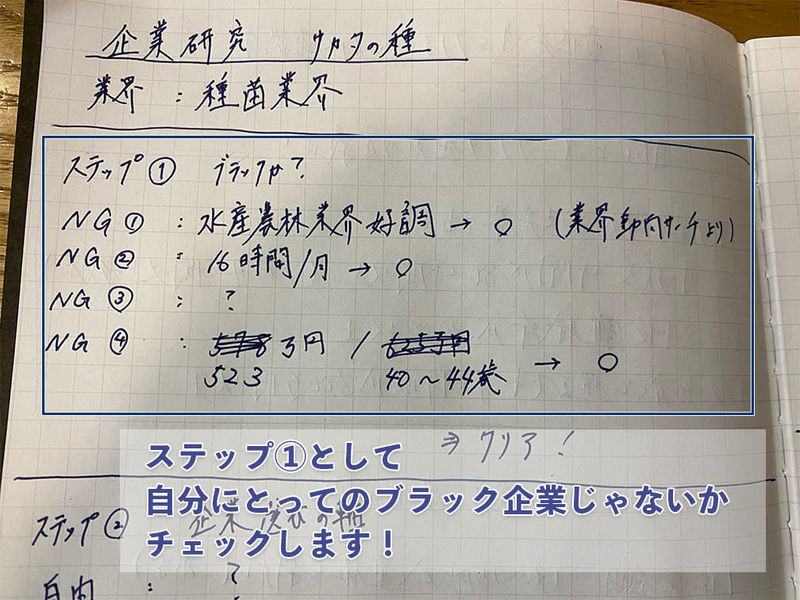 企業研究 サカタの種
業界 : 種苗業界
ステップ① ブラックか?
NG① : 水産農林業界好調 → ○ (業界動向サーチより)
NG② : 16時間/月 → ○
NG③ : ?
NG④ : 万円 /
523 40〜44歳 → ○
⇒ クリア!
ステップ①として
自分にとってのブラック企業じゃないか
チェックします!
ステップ② 企業選びの軸
: ?